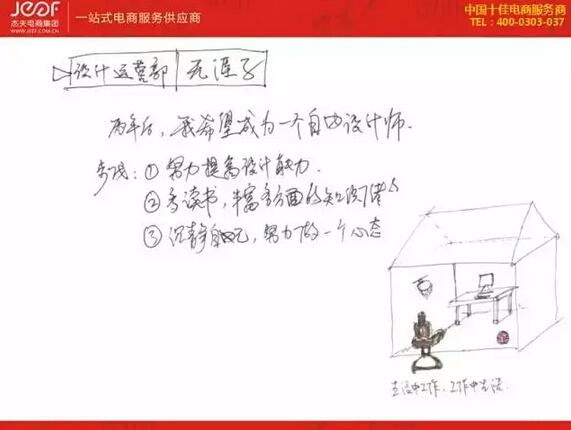 JEOF 一站式电商服务供应商 中国十佳电商服务商
杰夫电商集团 TEL：400-0303-037
WWW.JEOF.COM.CN
设计运营部 无涯子
两年后，我希望成为一个自由设计师.
步伐：① 努力提高设计能力.
② 多读书，丰富多方面的知识储备
③ 沉静自己，努力做一个心态
生活中工作，工作中生活.